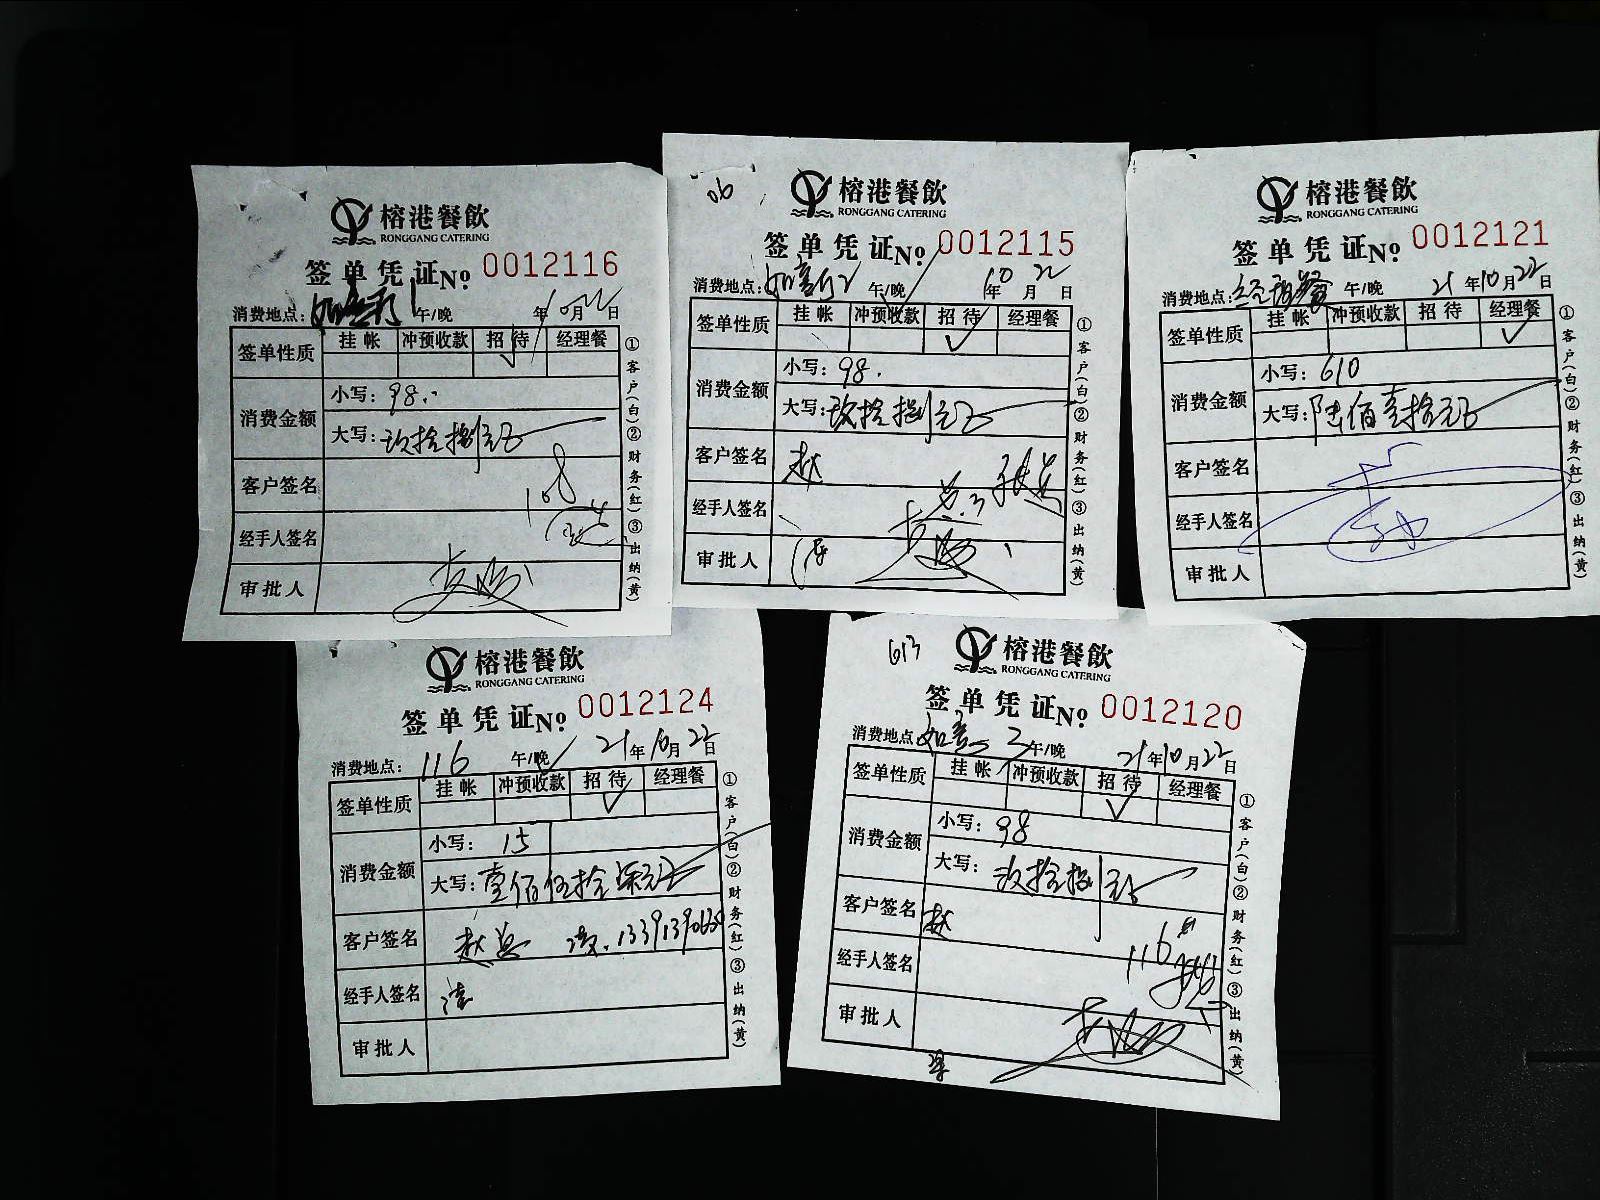 榕港餐飲
RONGGANG CATERING
签单凭证 No 0012116
消费地点： 午/晚 年10月22日
签单性质 挂帐 冲预收款 招待 经理餐
✓
消费金额 小写：98.
大写：玖拾捌元正
客户签名
108
经手人签名
审批人
①客户(白)②财务(红)③出纳(黄)
06
榕港餐飲
RONGGANG CATERING
签单凭证 No 0012115
消费地点：如意厅2 午/晚 年10月22日
签单性质 挂帐 冲预收款 招待 经理餐
✓
消费金额 小写：98.
大写：玖拾捌元正
客户签名 赵
经手人签名
审批人
①客户(白)②财务(红)③出纳(黄)
榕港餐飲
RONGGANG CATERING
签单凭证 No 0012121
消费地点：经理餐 午/晚 21年10月22日
签单性质 挂帐 冲预收款 招待 经理餐
✓
消费金额 小写：610
大写：陆佰壹拾元正
客户签名
经手人签名
审批人
①客户(白)②财务(红)③出纳(黄)
榕港餐飲
RONGGANG CATERING
签单凭证 No 0012124
消费地点：116 午/晚 21年10月22日
签单性质 挂帐 冲预收款 招待 经理餐
✓
消费金额 小写：
大写：壹佰伍拾 元正
客户签名 赵
经手人签名
审批人
①客户(白)②财务(红)③出纳(黄)
613
榕港餐飲
RONGGANG CATERING
签单凭证 No 0012120
消费地点：如意 午/晚 21年10月22日
签单性质 挂帐 冲预收款 招待 经理餐
✓
消费金额 小写：98
大写：玖拾捌元正
客户签名 赵
116
经手人签名
审批人
①客户(白)②财务(红)③出纳(黄)